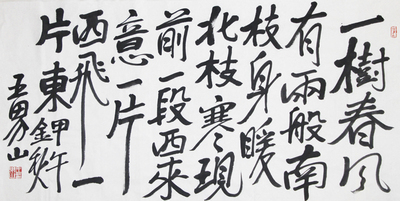 一樹春风
有兩般南
枝身暖
北枝寒現
前一段西來
意一片
西飛一
片東甲午秋
山